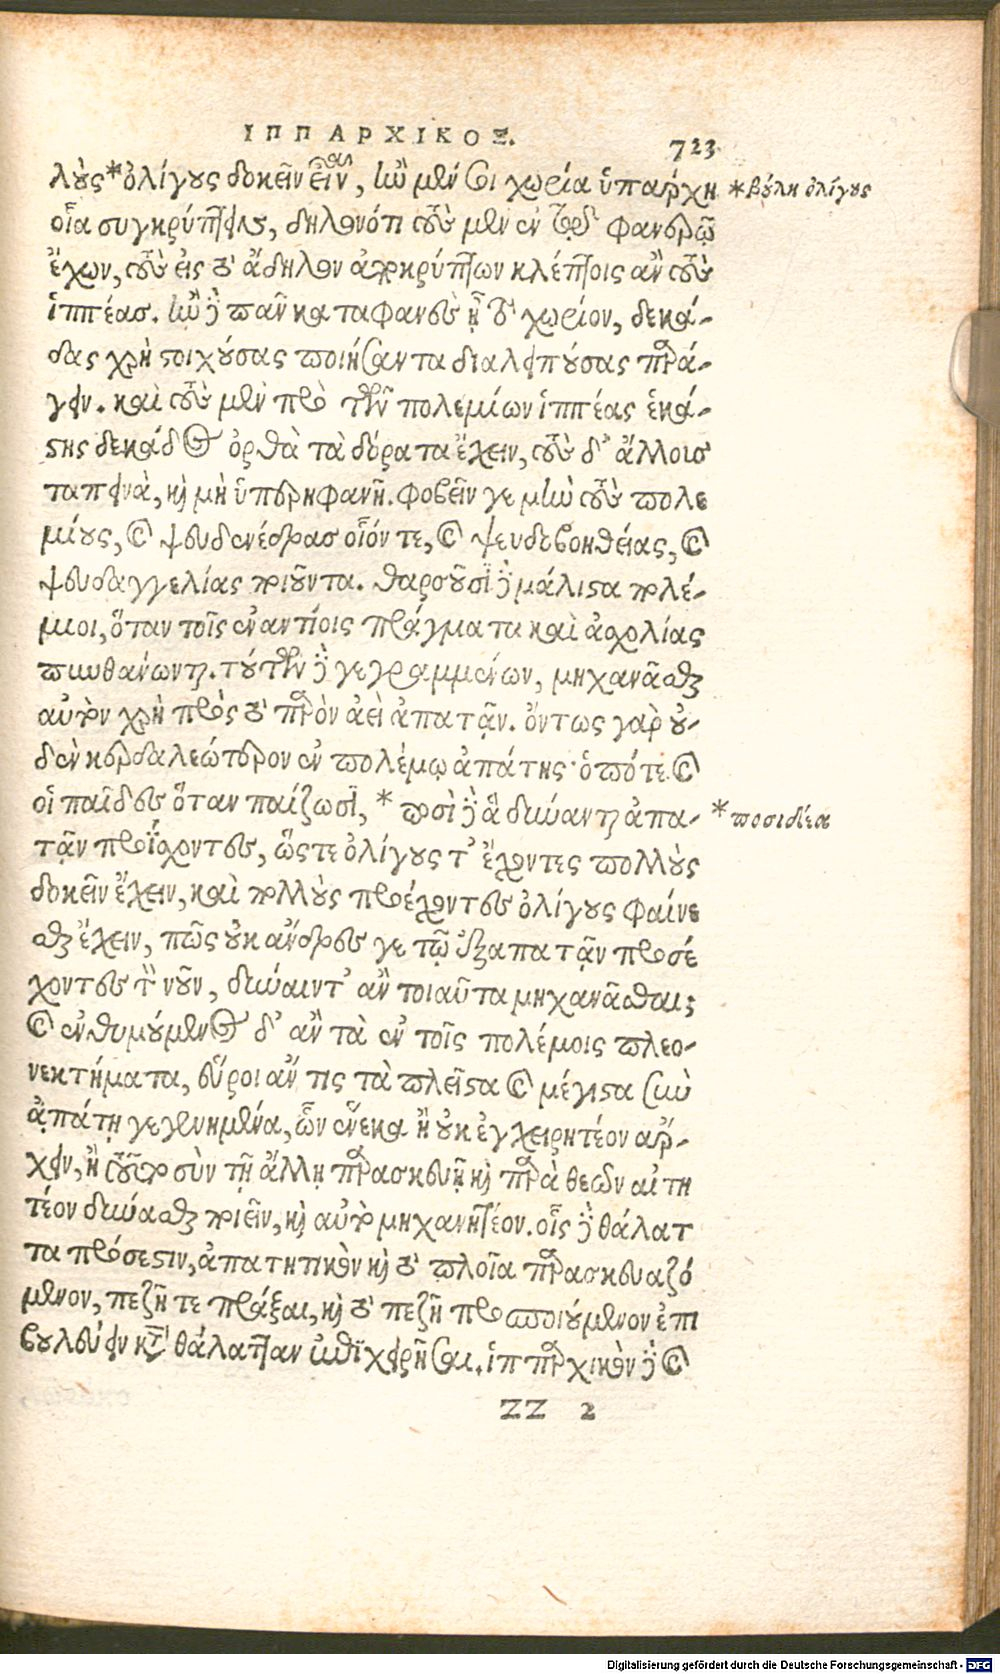 ΙΠΠΑΡΧΙΚΟΣ. 723
λοὺς *ὀλίγους δοκεῖν εἶναι, ἢν μέν σοι χωρία ὑπάρχῃ *βούλῃ ὀλίγους
οἷα συγκρύπτειν, δηλονότι τοὺς μὲν ἐν τῷ φανερῷ
ἔχων, τοὺς εἰς τὸ ἄδηλον ἀποκρύπτων κλέπτοις ἂν τοὺς
ἱππέας. ἢν δὲ πᾶν καταφανὲς ᾖ τὸ χωρίον, δεκά-
δας χρὴ στοιχούσας ποιήσαντα διαλειπούσας παρά-
γειν. καὶ τοὺς μὲν πρὸς τῶν πολεμίων ἱππέας ἑκά-
στης δεκάδος ὀρθὰ τὰ δόρατα ἔχειν, τοὺς δ' ἄλλους
ταπεινὰ, καὶ μὴ ὑπερηφανῆ. φοβεῖν γε μὴν τοὺς πολε
μίους, καὶ ψευδενέδρας οἷόν τε, καὶ ψευδοβοηθείας, καὶ
ψευδαγγελίας ποιοῦντα. θαρσοῦσι δὲ μάλιστα πολέ-
μιοι, ὅταν τοῖς ἐναντίοις πράγματα καὶ ἀσχολίας
πυνθάνωνται. τούτων δὲ γεγραμμένων, μηχανᾶσθαι
αὐτὸν χρὴ πρὸς τὸ παρὸν ἀεὶ ἀπατᾷν. ὄντως γὰρ οὐ-
δὲν κερδαλεώτερον ἐν πολέμῳ ἀπάτης· ὁπότε καὶ
οἱ παῖδες ὅταν παίζωσι, * ποσὶ δὲ ἃ δύνανται ἀπα- *ποσιδίεα
τᾷν προΐσχοντες, ὥστε ὀλίγους τ' ἔχοντες πολλοὺς
δοκεῖν ἔχειν, καὶ πολλοὺς προέχοντες ὀλίγους φαίνε
σθαι ἔχειν, πῶς οὐκ ἄνδρες γε τῷ ἐξαπατᾷν προσέ
χοντες τὸν νοῦν, δύναιντ' ἂν τοιαῦτα μηχανᾶσθαι;
καὶ ἐνθυμούμενος δ' ἂν τὰ ἐν τοῖς πολέμοις πλεο-
νεκτήματα, εὕροι ἄν τις τὰ πλεῖστα καὶ μέγιστα σὺν
ἀπάτῃ γεγενημένα, ὧν ἕνεκα ἢ οὐκ ἐγχειρητέον ἄρ-
χειν, ἢ τοῦτο σὺν τῇ ἄλλῃ παρασκευῇ καὶ παρὰ θεῶν αἰτη
τέον δύνασθαι ποιεῖν, καὶ αὐτῷ μηχανητέον. οἷς δὲ θάλατ
τα πρόσεστιν, ἀπατητικὸν καὶ τὸ πλοῖα παρασκευαζό
μενον, πεζῇ τε πρᾶξαι, καὶ τὸ πεζῇ προσποιούμενον ἐπι
βουλεύειν κατὰ θάλατταν ἐπιχειρῆσαι. ἱππαρχικὸν δὲ καὶ
ZZ 2
Digitalisierung gefördert durch die Deutsche Forschungsgemeinschaft - DFG